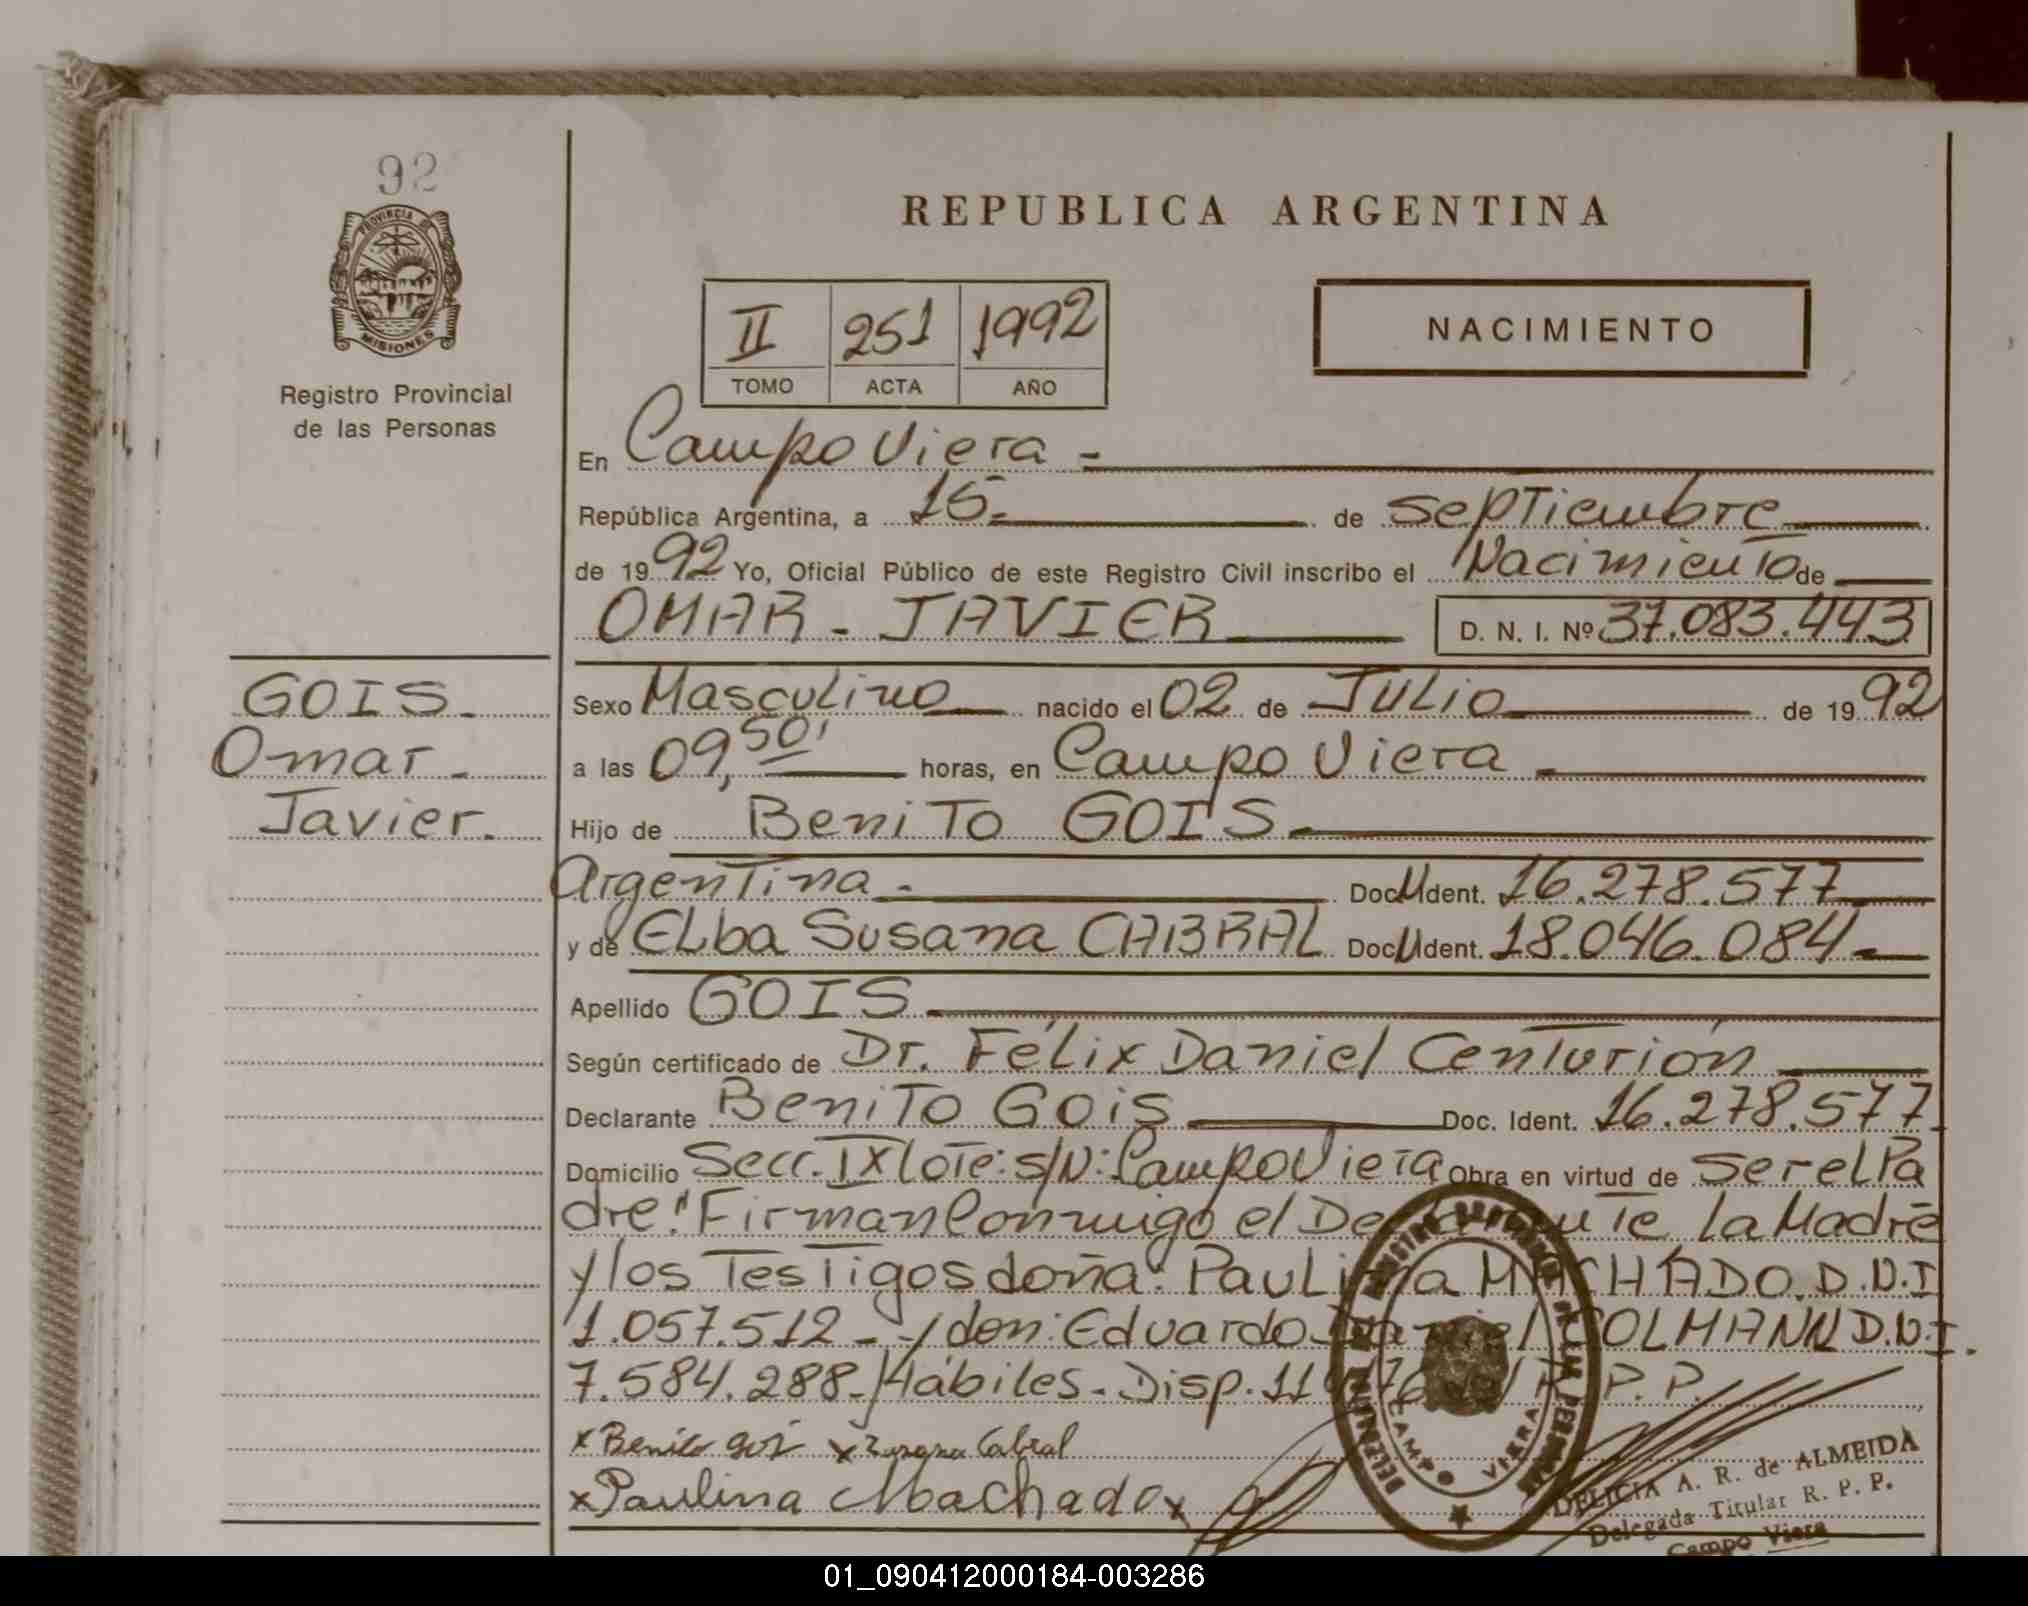 92
PROVINCIA DE
MISIONES
Registro Provincial
de las Personas
REPUBLICA ARGENTINA
II 251 1992
TOMO ACTA AÑO
NACIMIENTO
En Campo Viera -
República Argentina, a 15- de septiembre
de 1992 Yo, Oficial Público de este Registro Civil inscribo el Nacimiento de
OMAR - JAVIER D. N. I. Nº 37.083.443
GOIS.
Omar -
Javier.
Sexo Masculino nacido el 02 de Julio de 1992
a las 09,50' horas, en Campo Viera -
Hijo de Benito GOIS.
Argentina - Doc. U Ident. 16.278.577
y de Elba Susana CABRAL Doc. U Ident. 18.046.084-
Apellido GOIS
Según certificado de Dr. Félix Daniel Centurión
Declarante Benito Gois Doc. Ident. 16.278.577
Domicilio Secc. IX lote: s/N: Campo Viera Obra en virtud de ser el Pa
dre! Firman Conmigo el Declarante la Madre
y los Testigos doña: Paulina MACHADO. D.N.I
1.057.512 - y don: Eduardo D.N.I.
7.584.288 - Hábiles. Disp. P.P.
x Benito gois x Susana Cabral
x Paulina Machado x
CAMPO VIERA
DELICIA A. R. de ALMEIDA
Delegada Titular R. P. P.
Campo Viera
01_090412000184-003286